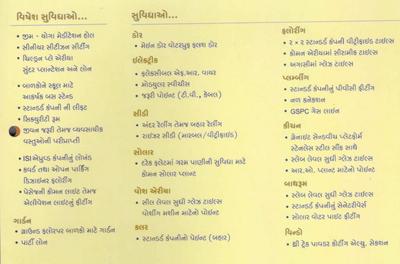 વિષેશ સુવિધાઓ...
• જીમ - યોગા મેડીટેશન હોલ
• સીનીયર સીટીઝન સીટીંગ
• ચિલ્ડ્રન પ્લે એરીયા
સુંદર પ્લાન્ટેશન અને લોન
• બાળકોને સ્કૂલ માટે
આકર્ષક બસ સ્ટેન્ડ
• સ્ટાન્ડર્ડ કંપની ની લીફ્ટ
• સિક્યુરીટી રૂમ
• જીવન જરૂરી તેમજ વ્યવસાયીક
વસ્તુઓની પરીપ્રાપ્તી
• ISI એપ્રુવ્ડ કંપનીનું લોખંડ
• કવર્ડ તથા ઓપન પાર્કિંગ
ડિઝાઈનર ફ્લોરીંગ
• પેસેજની કોમન લાઈટ તેમજ
એલીવેશન લાઈટનું ફીટીંગ
ગાર્ડન
• ગ્રાઉન્ડ ફ્લોરપર બાળકો માટે ગાર્ડન
• પાર્ટી લોન
સુવિધાઓ...
ડોર
• મેઈન ડોર વોટરપ્રુફ ફ્લશ ડોર
ઈલેક્ટ્રીક
• ફ્લેક્સીબલ એફ.આર. વાયર
• મોડ્યુલર સ્વીચીસ
• જરૂરી પોઈન્ટ (ટી.વી., કેબલ)
સીડી
• અંદર રેલીંગ તેમજ બહાર રેલીંગ
• રાઈઝર સીડી (મારબલ/વીટ્રીફાઈડ)
સોલાર
• દરેક ફ્લેટમાં ગરમ પાણીની સુવિધા માટે
કોમન સોલાર પ્લાન્ટ
વોશ એરીયા
• સીલ લેવલ સુધી ગ્લેઝ ટાઈલ્સ
વોશીંગ મશીન માટેનો પોઈન્ટ
કલર
• સ્ટાન્ડર્ડ કંપનીનો પેઈન્ટ (બહાર)
ફ્લોરીંગ
• ૨ × ૨ સ્ટાન્ડર્ડ કંપની વીટ્રીફાઈડ ટાઈલ્સ
• કોમન એરીયામાં સીરામીક ટાઈલ્સ
• અગાસીમાં ગ્લેઝ ટાઈલ્સ
પ્લમ્બીંગ
• સ્ટાન્ડર્ડ કંપનીનું પીવીસી ફીટીંગ
• નળ કનેક્શન
• GSPC ગેસ લાઈન
કીચન
• ગ્રેનાઈટ સેન્ડવીચ પ્લેટફોર્મ
સ્ટેનલેસ સ્ટીલ સીંક સાથે
• સ્લેબ લેવલ સુધી ગ્લેઝ ટાઈલ્સ
• આર.ઓ. પ્લાન્ટ માટેનો પોઈન્ટ
બાથરૂમ
• સ્લેબ લેવલ સુધી ગ્લેઝ ટાઈલ્સ
• સ્ટાન્ડર્ડ કંપનીનું સેનેટરીવેર્સ
• સોલાર વોટર પાઈન્ટ ફીટીંગ
વિન્ડો
• થ્રી ટ્રેક પાવડર કોટીંગ એલ્યુ. સેક્શન